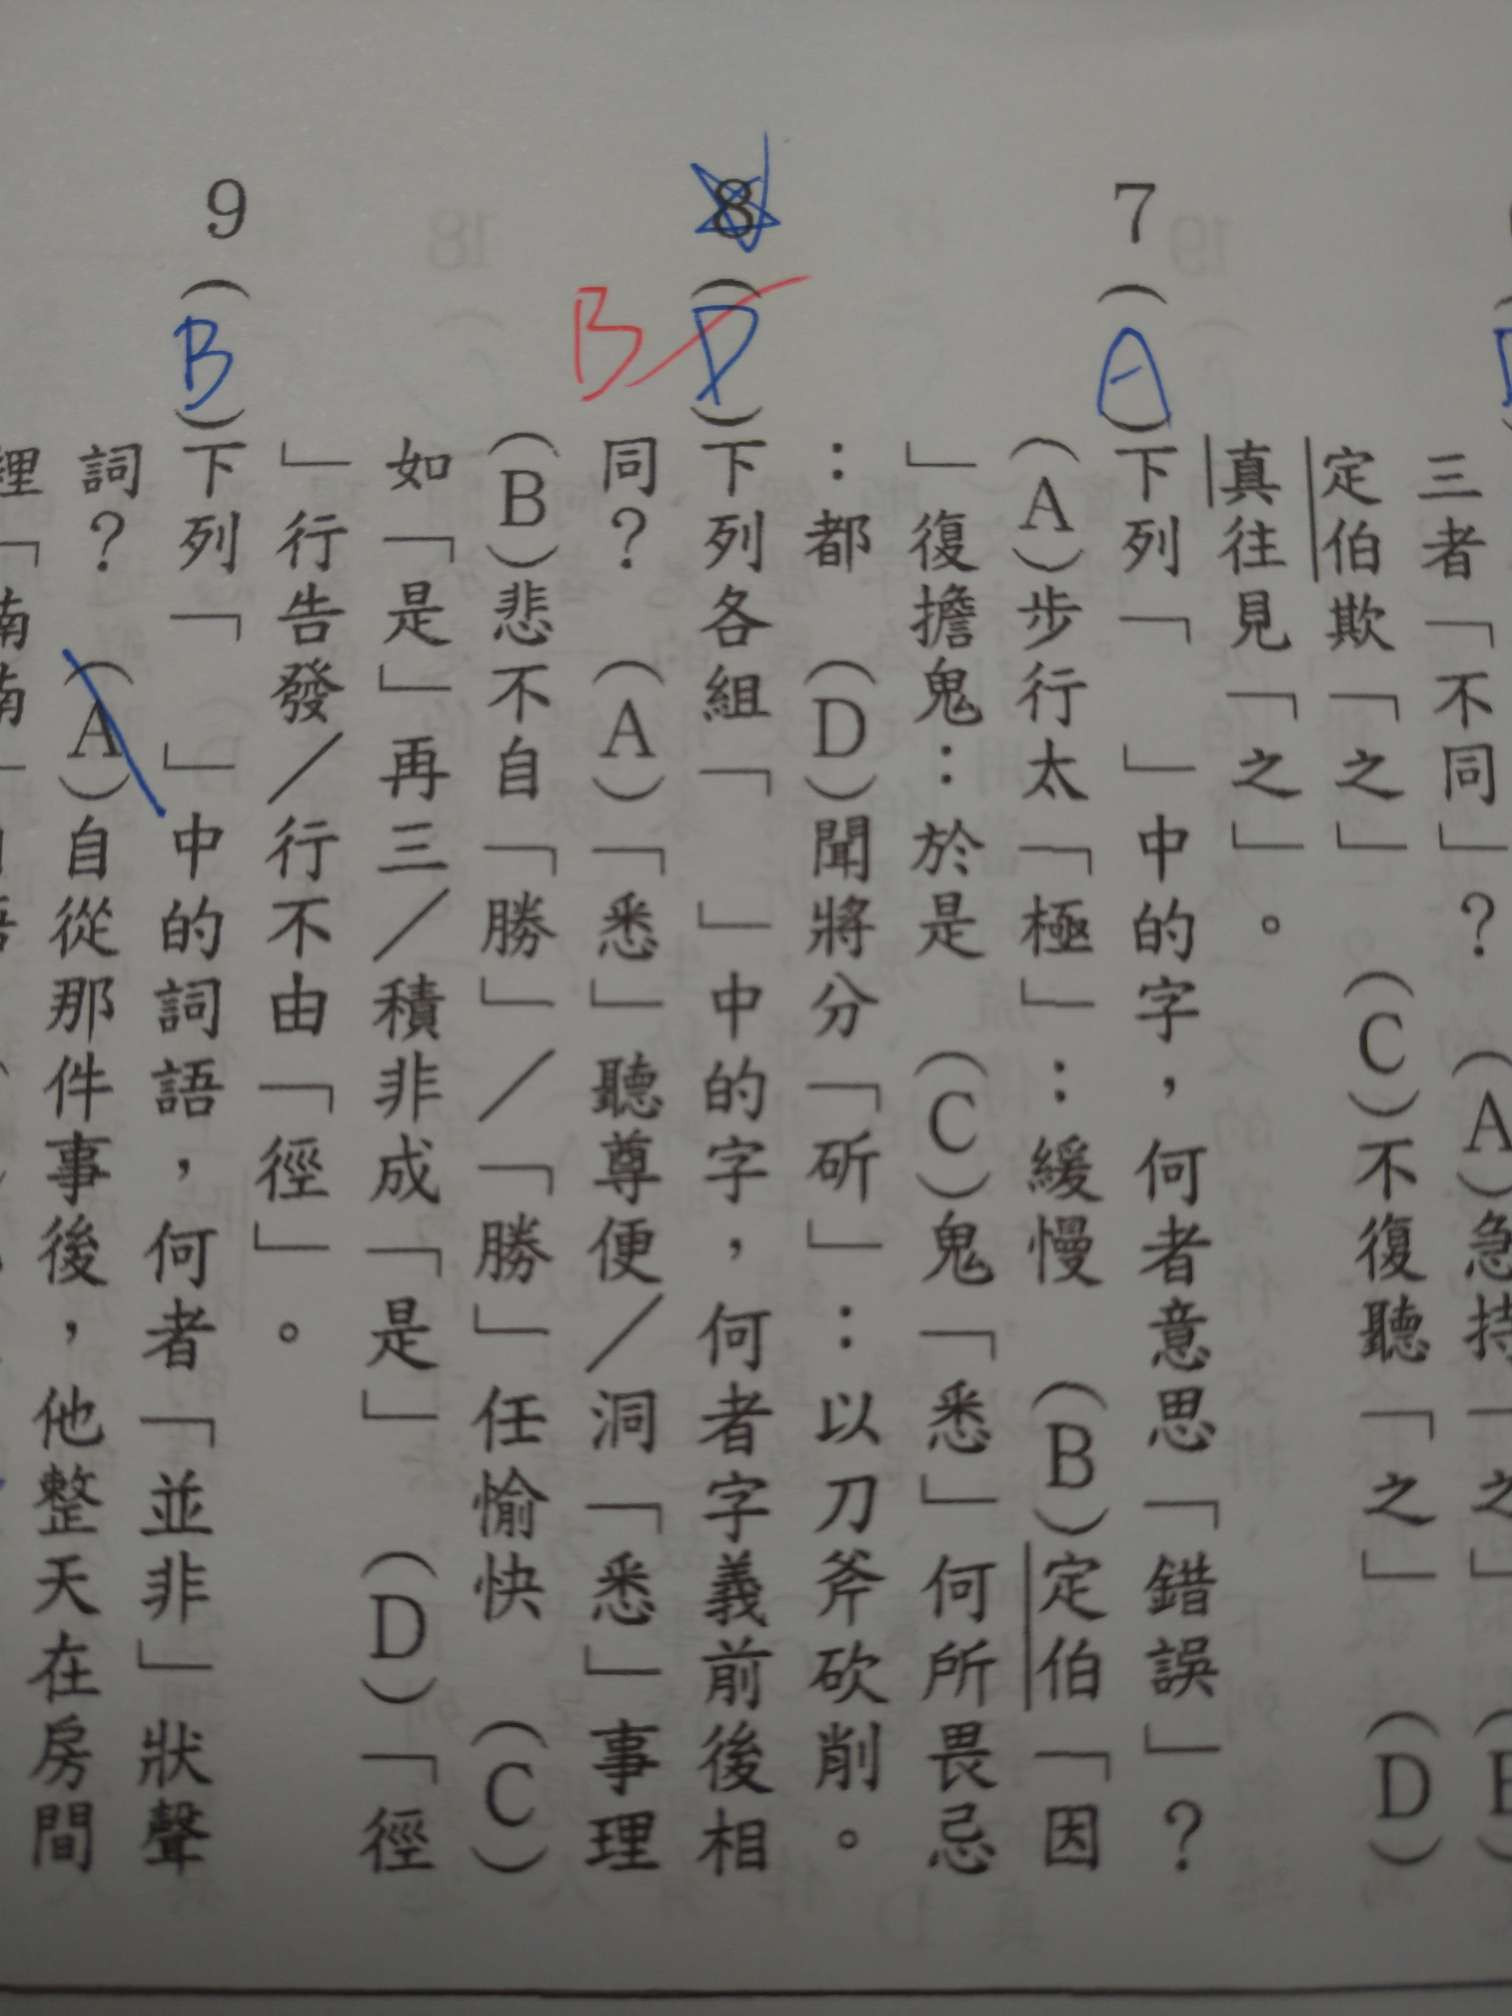 三者「不同」？ (A)急持「之」 (B)
定伯欺「之」 (C)不復聽「之」 (D)
真往見「之」。
7 (A)下列「 」中的字，何者意思「錯誤」？
(A)步行太「極」：緩慢 (B)定伯「因
」復擔鬼：於是 (C)鬼「悉」何所畏忌
：都 (D)聞將分「斫」：以刀斧砍削。
8 (D)下列各組「 」中的字，何者字義前後相
B
同？ (A)「悉」聽尊便／洞「悉」事理
(B)悲不自「勝」／「勝」任愉快 (C)
如「是」再三／積非成「是」 (D)「徑
」行告發／行不由「徑」。
9 (B)下列「 」中的詞語，何者「並非」狀聲
詞？ (A)自從那件事後，他整天在房間
裡「喃喃」自語